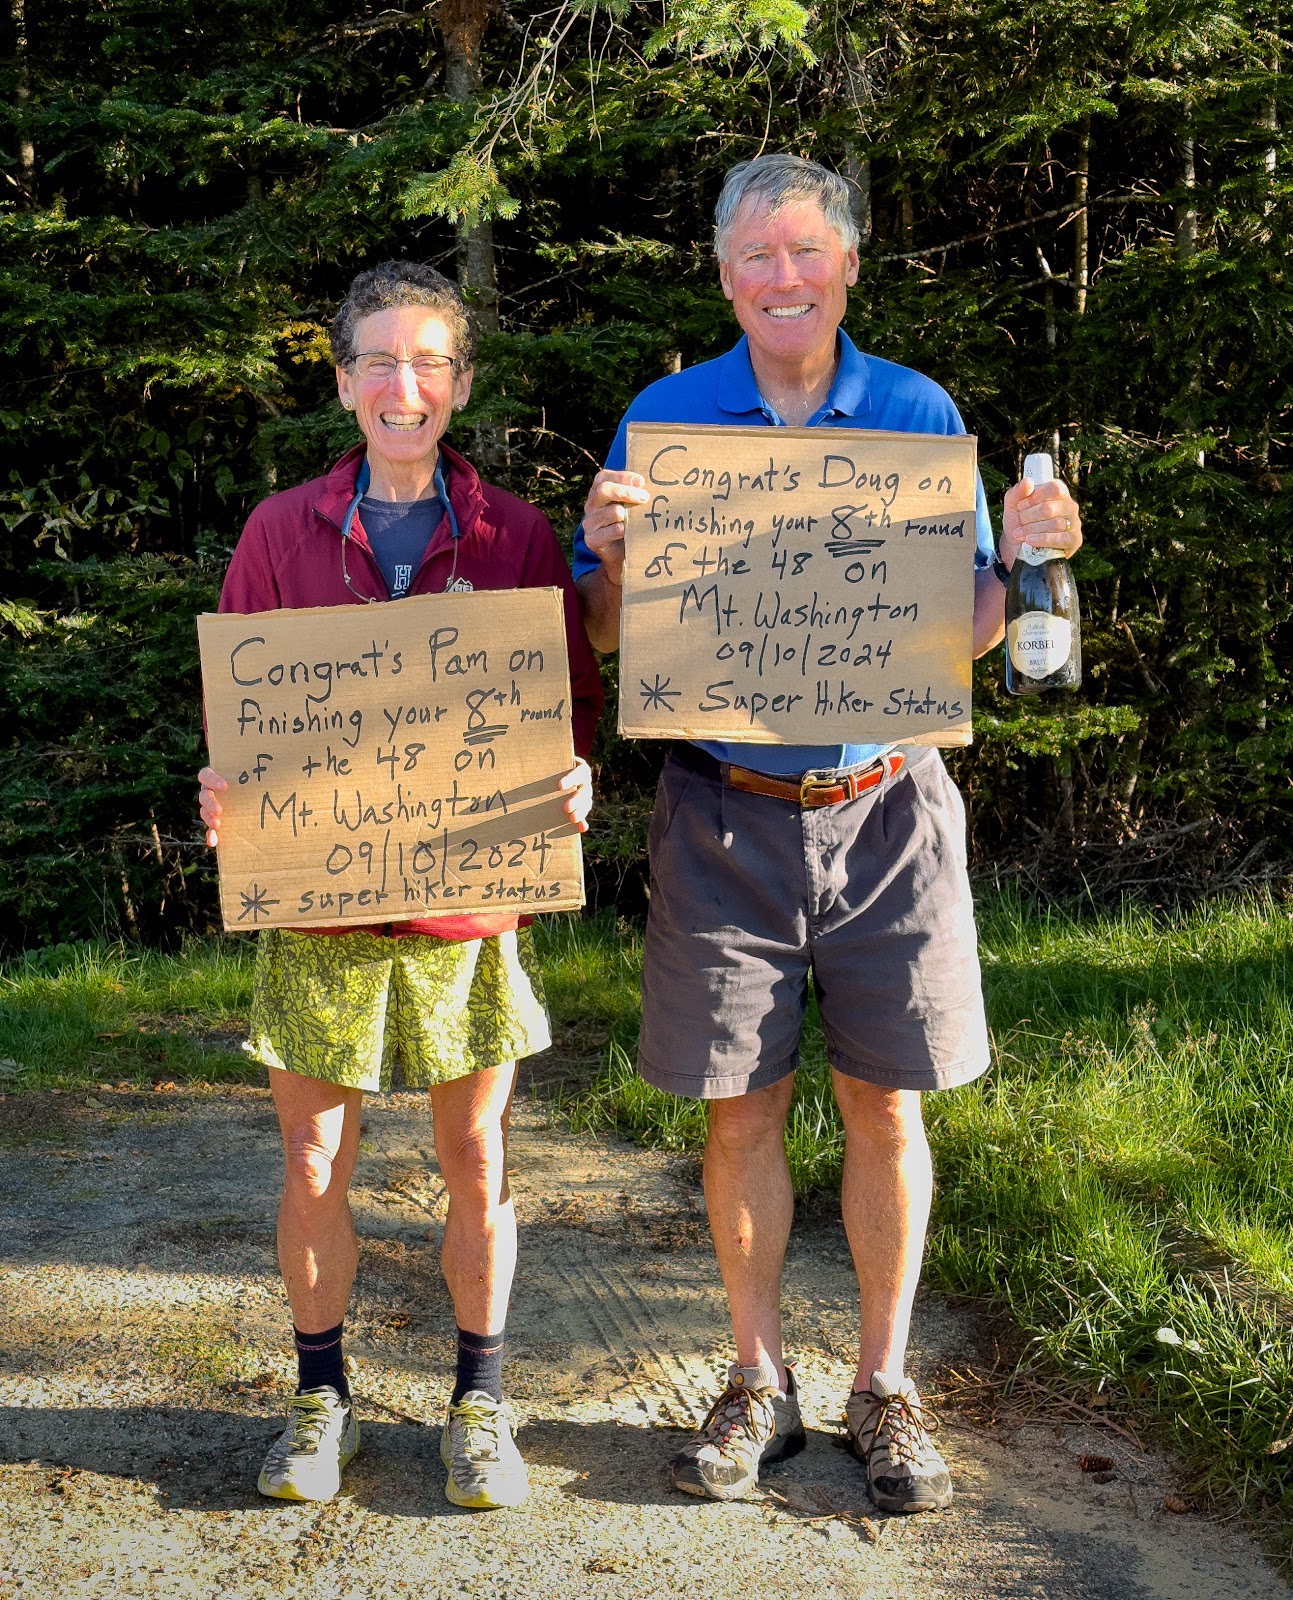 Congrat's Pam on
finishing your 8th round
of the 48 on
Mt. Washington
09/10/2024
* super hiker status
Congrat's Doug on
finishing your 8th round
of the 48 on
Mt. Washington
09/10/2024
* Super Hiker Status
H
KORBEL
BRUT